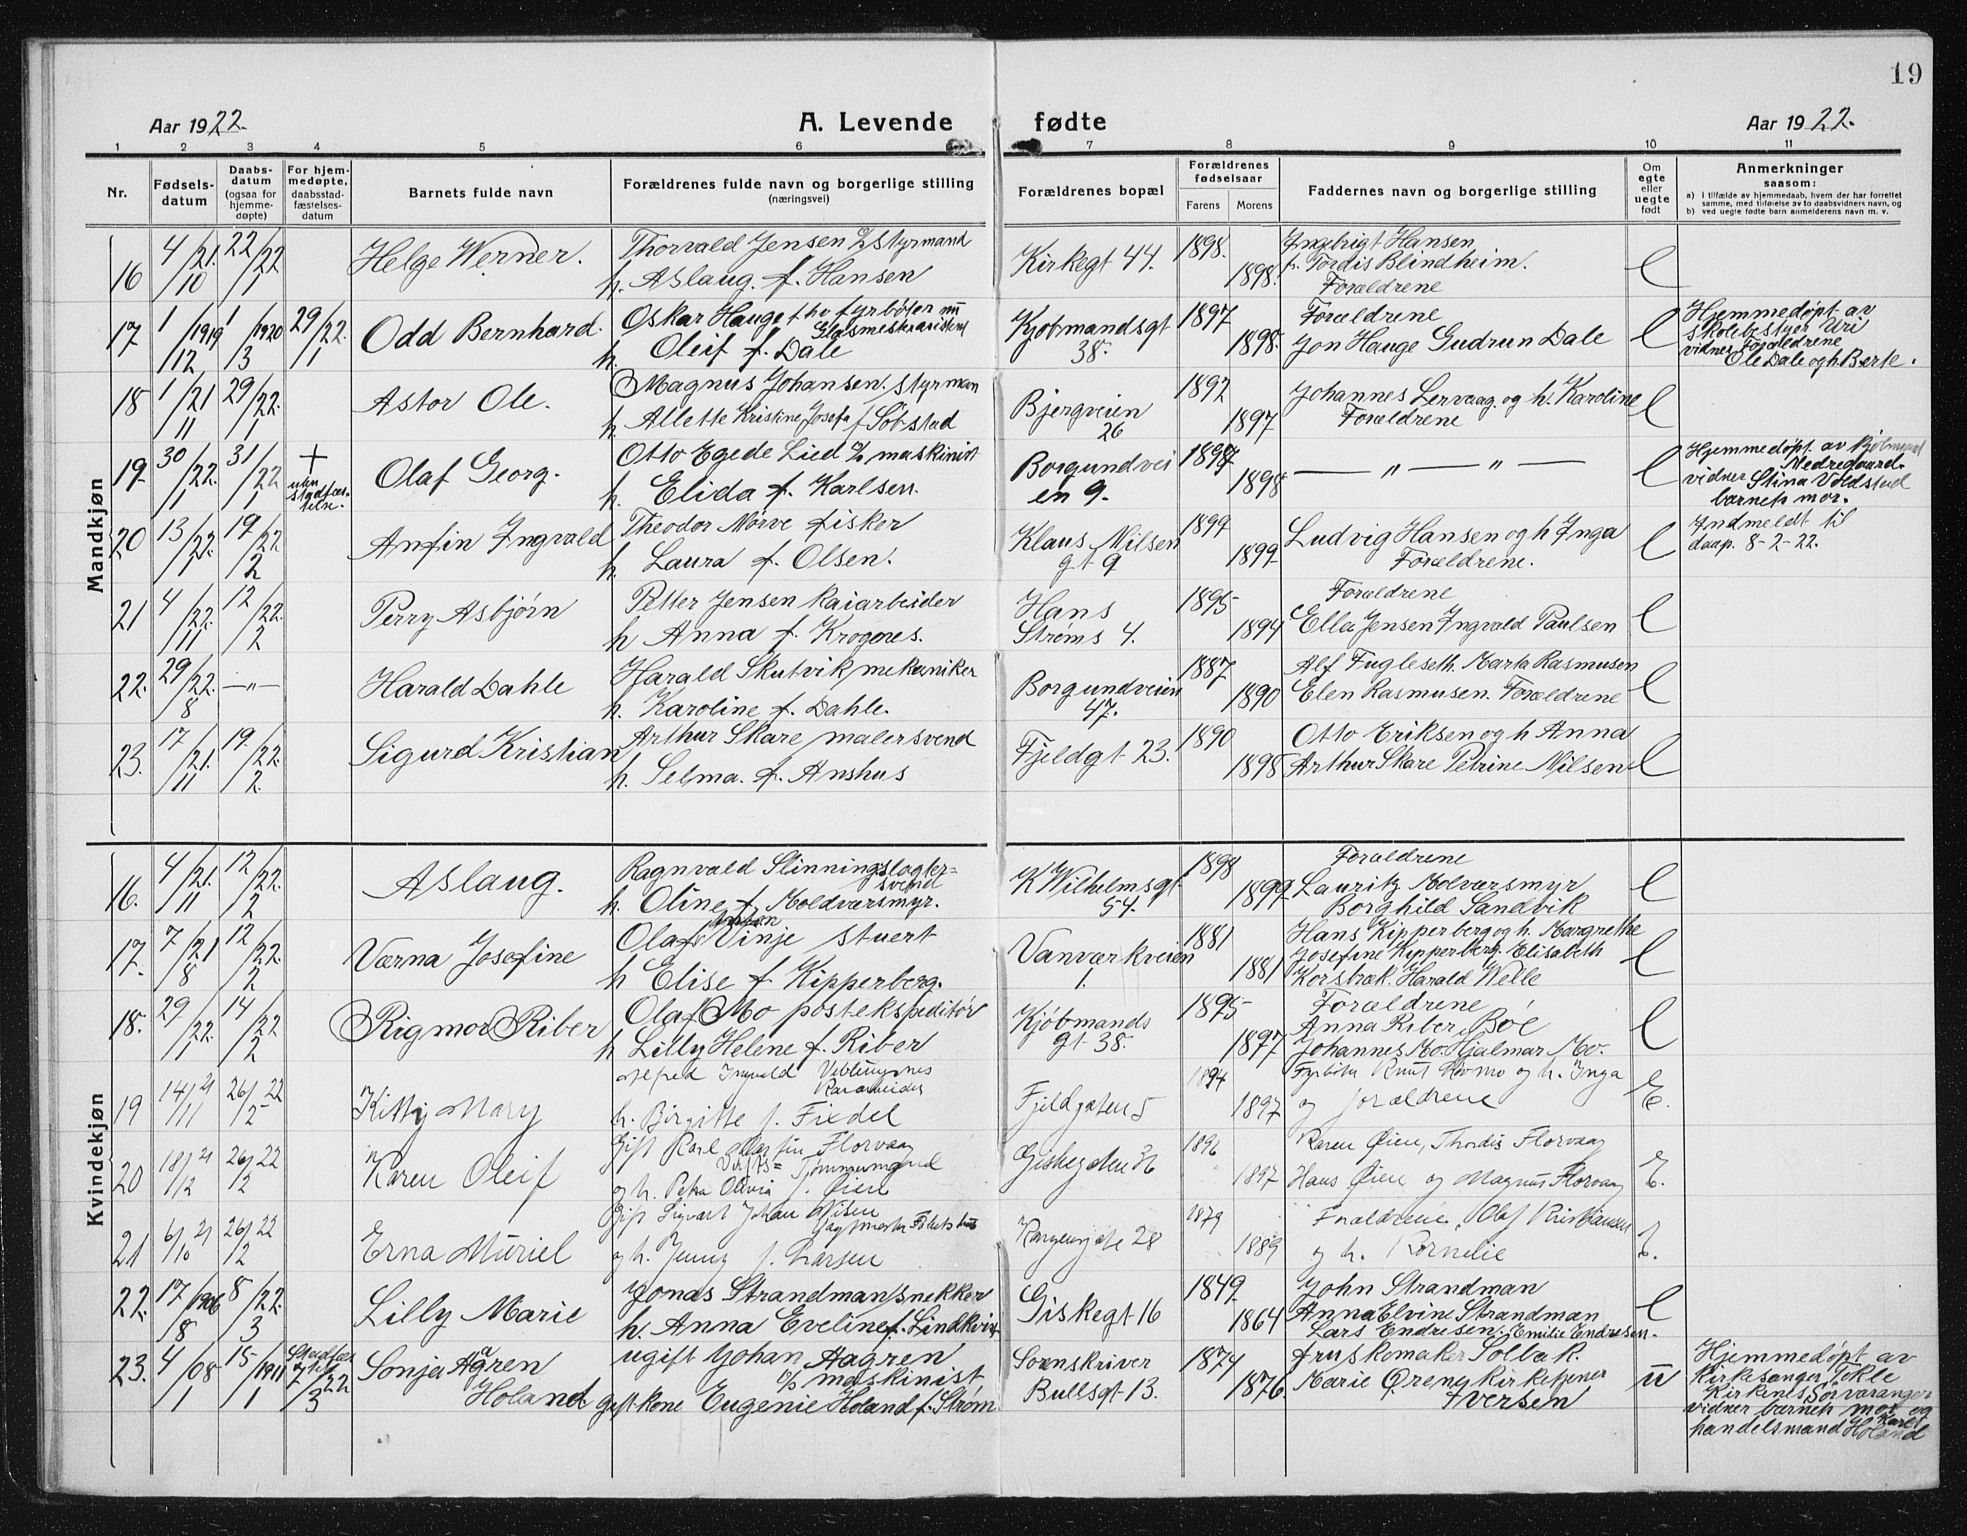 19
Aar 1922.
A. Levende fødte
Aar 1922.
1 2 3 4 5 6 7 8 9 10 11
Nr.
Fødsels-
datum
Daabs-
datum
(ogsaa for
hjemme-
døpte)
For hjem-
medøpte,
daabsstad-
fæstelses-
datum
Barnets fulde navn
Forældrenes fulde navn og borgerlige stilling
(næringsvei)
Forældrenes bopæl
Forældrenes
fødselsaar
Farens Morens
Faddernes navn og borgerlige stilling
Om
egte
eller
uegte
født
Anmerkninger
saasom:
a) i tilfælde av hjemmedaab, hvem der har forrettet
samme, med tilføielse av to daabsvidners navn, og
b) ved uegte fødte barn anmelderens navn m. v.
Mandkjøn
16 4/10 21. 22/1 22 Helge Werner. Thorvald Jensen styrmand
h. Aslaug f. Hansen
Kirkegt 44. 1898. 1898.
Ingebrigt Hansen
fr. Tordis Blindheim.
Forældrene
17 1/12 1919 1/3 1920 29/1 22. Odd Bernhard. Oskar Hauge fhv fyrbøter nu
h. Oleif f. Dale
Kjøbmandsgt
38. 1897 1898.
Forældrene
Jon Hauge Gudrun Dale
Hjemmedøpt av
skolebestyer Uri
vidner Forældrene
Ole Dale og h Berte.
18 1/11 21 29/1 22. Astor Ole. Magnus Johansen. styrman
h. Allette Kristine Josefa f Søbstad
Bjergveien
26 1892 1897
Johannes Lervaag. og h. Karoline
Forældrene
19. 30/1 22. 31/1 22 + uten
stadfæs-
telse. Olaf Georg. Otto Egede Lied maskinist
h. Elida f. Karlsen.
Borgundvei
en 9. 1897 1898
— „ — „ —
Hjemmedøpt av
vidner Stina Voldstad
barnets mor.
20 13/1 22. 19/2 22 Anfin Ingvald Theodor Nørve fisker
h. Laura f. Olsen.
Klaus Nilsen
gt 9 1899 1899.
Ludvig Hansen og h Inga
Forældrene.
Indmeldt til
daap. 8-2-22.
21 4/11 22. 12/2 22. Perry Asbjørn Petter Jensen Kaiarbeider
h Anna f. Krognes.
Hans
Strøms 4. 1895 1894
Forældrene
Ella Jensen Ingvald Paulsen
22. 29/8 22. —„— Harald Dahle Harald Skutvik mekaniker
h. Karoline f. Dahle.
Borgundveien
47. 1887 1890
Alf Fugleseth. Marta Rasmusen
Elen Rasmusen. Forældrene
23. 17/11 21. 19./2 22. Sigurd Kristian Arthur Skare malersvend
h. Selma. f. Anshus
Fjeldgt 23. 1890 1898
Otto Eriksen og h Anna
Arthur Skare Petrine Nilsen
Kvindekjøn
16. 4/11 21. 12/2 22. Aslaug. Ragnvald Slinning slagter-
svend
h. Oline f Moldværsmyr.
K Wilhelmsgt
54. 1898 1899
Forældrene
Lauritz Molværsmyr
Borghild Sandvik
17. 7/8 21 12/2 22. Værna Josefine Olaf Anton Vinje stuert
h Elise f Kipperberg.
Vanværkveien
1. 1881 1881
Hans Kipperberg og h. Margrethe
Josefine Kipperberg. Elisabeth
Korsbæk. Harald Welle
18. 29/1 22. 14/2 22 Rigmor Riber Olaf Mo postekspeditör
h Lilly Helene f. Riber
Kjøbmands
gt 38. 1895 1897
Forældrene
Anna Riber Bøe
Johannes Mo. Hjalmar Mo.
19 14/11 21 26/2 22 Kitty Mary Alfred Ingvald Veblungsnes
h. Birgitte f. Fixdel
Fjeldgaten 5 1894 1897
Knut Romo og h. Inga
og forældrene
20 18/12 21 26/2 22 Karen Oleif Gift Karl Florvaag
Tømmermand
og h. Petra Olivia f. Øien
Giskegaten 36 1896 1897
Karen Øien, Thordis Florvaag
Hans Øien og Magnus Florvaag
21 6/10 21 26/2 22 Erna Müriel Gift Sigvart Johan Nilsen
og h. Jenny f. Larsen
28 1879 1889
Forældrene, Olaf Kristiansen
og h. Kornelie
22. 17/8 1906 8/3 22. Lilly Marie Jonas Strandman snekker
h. Anna Eveline f. Lindkvist
Giskegt 16 1849 1864
John Strandman
Anna Elvine Strandman
Lars Endresen. Emilie Endresen.
23. 4/1 08 15/1 1911 7/3 22 Sonja Aagren
Holand
ugift Johan Aagren
maskinist
gift kone Eugenie Holand f. Strøm
Sorenskriver
Bullsgt 13. 1874 1876
fru skomaker Solbak.
Marie Ørene Kirketjener
Iversen
u
Hjemmedøpt av
kirkesanger Tokle
Kirkenes Sørvaranger
vidner barnets mor og
handelsmand Karl Holand